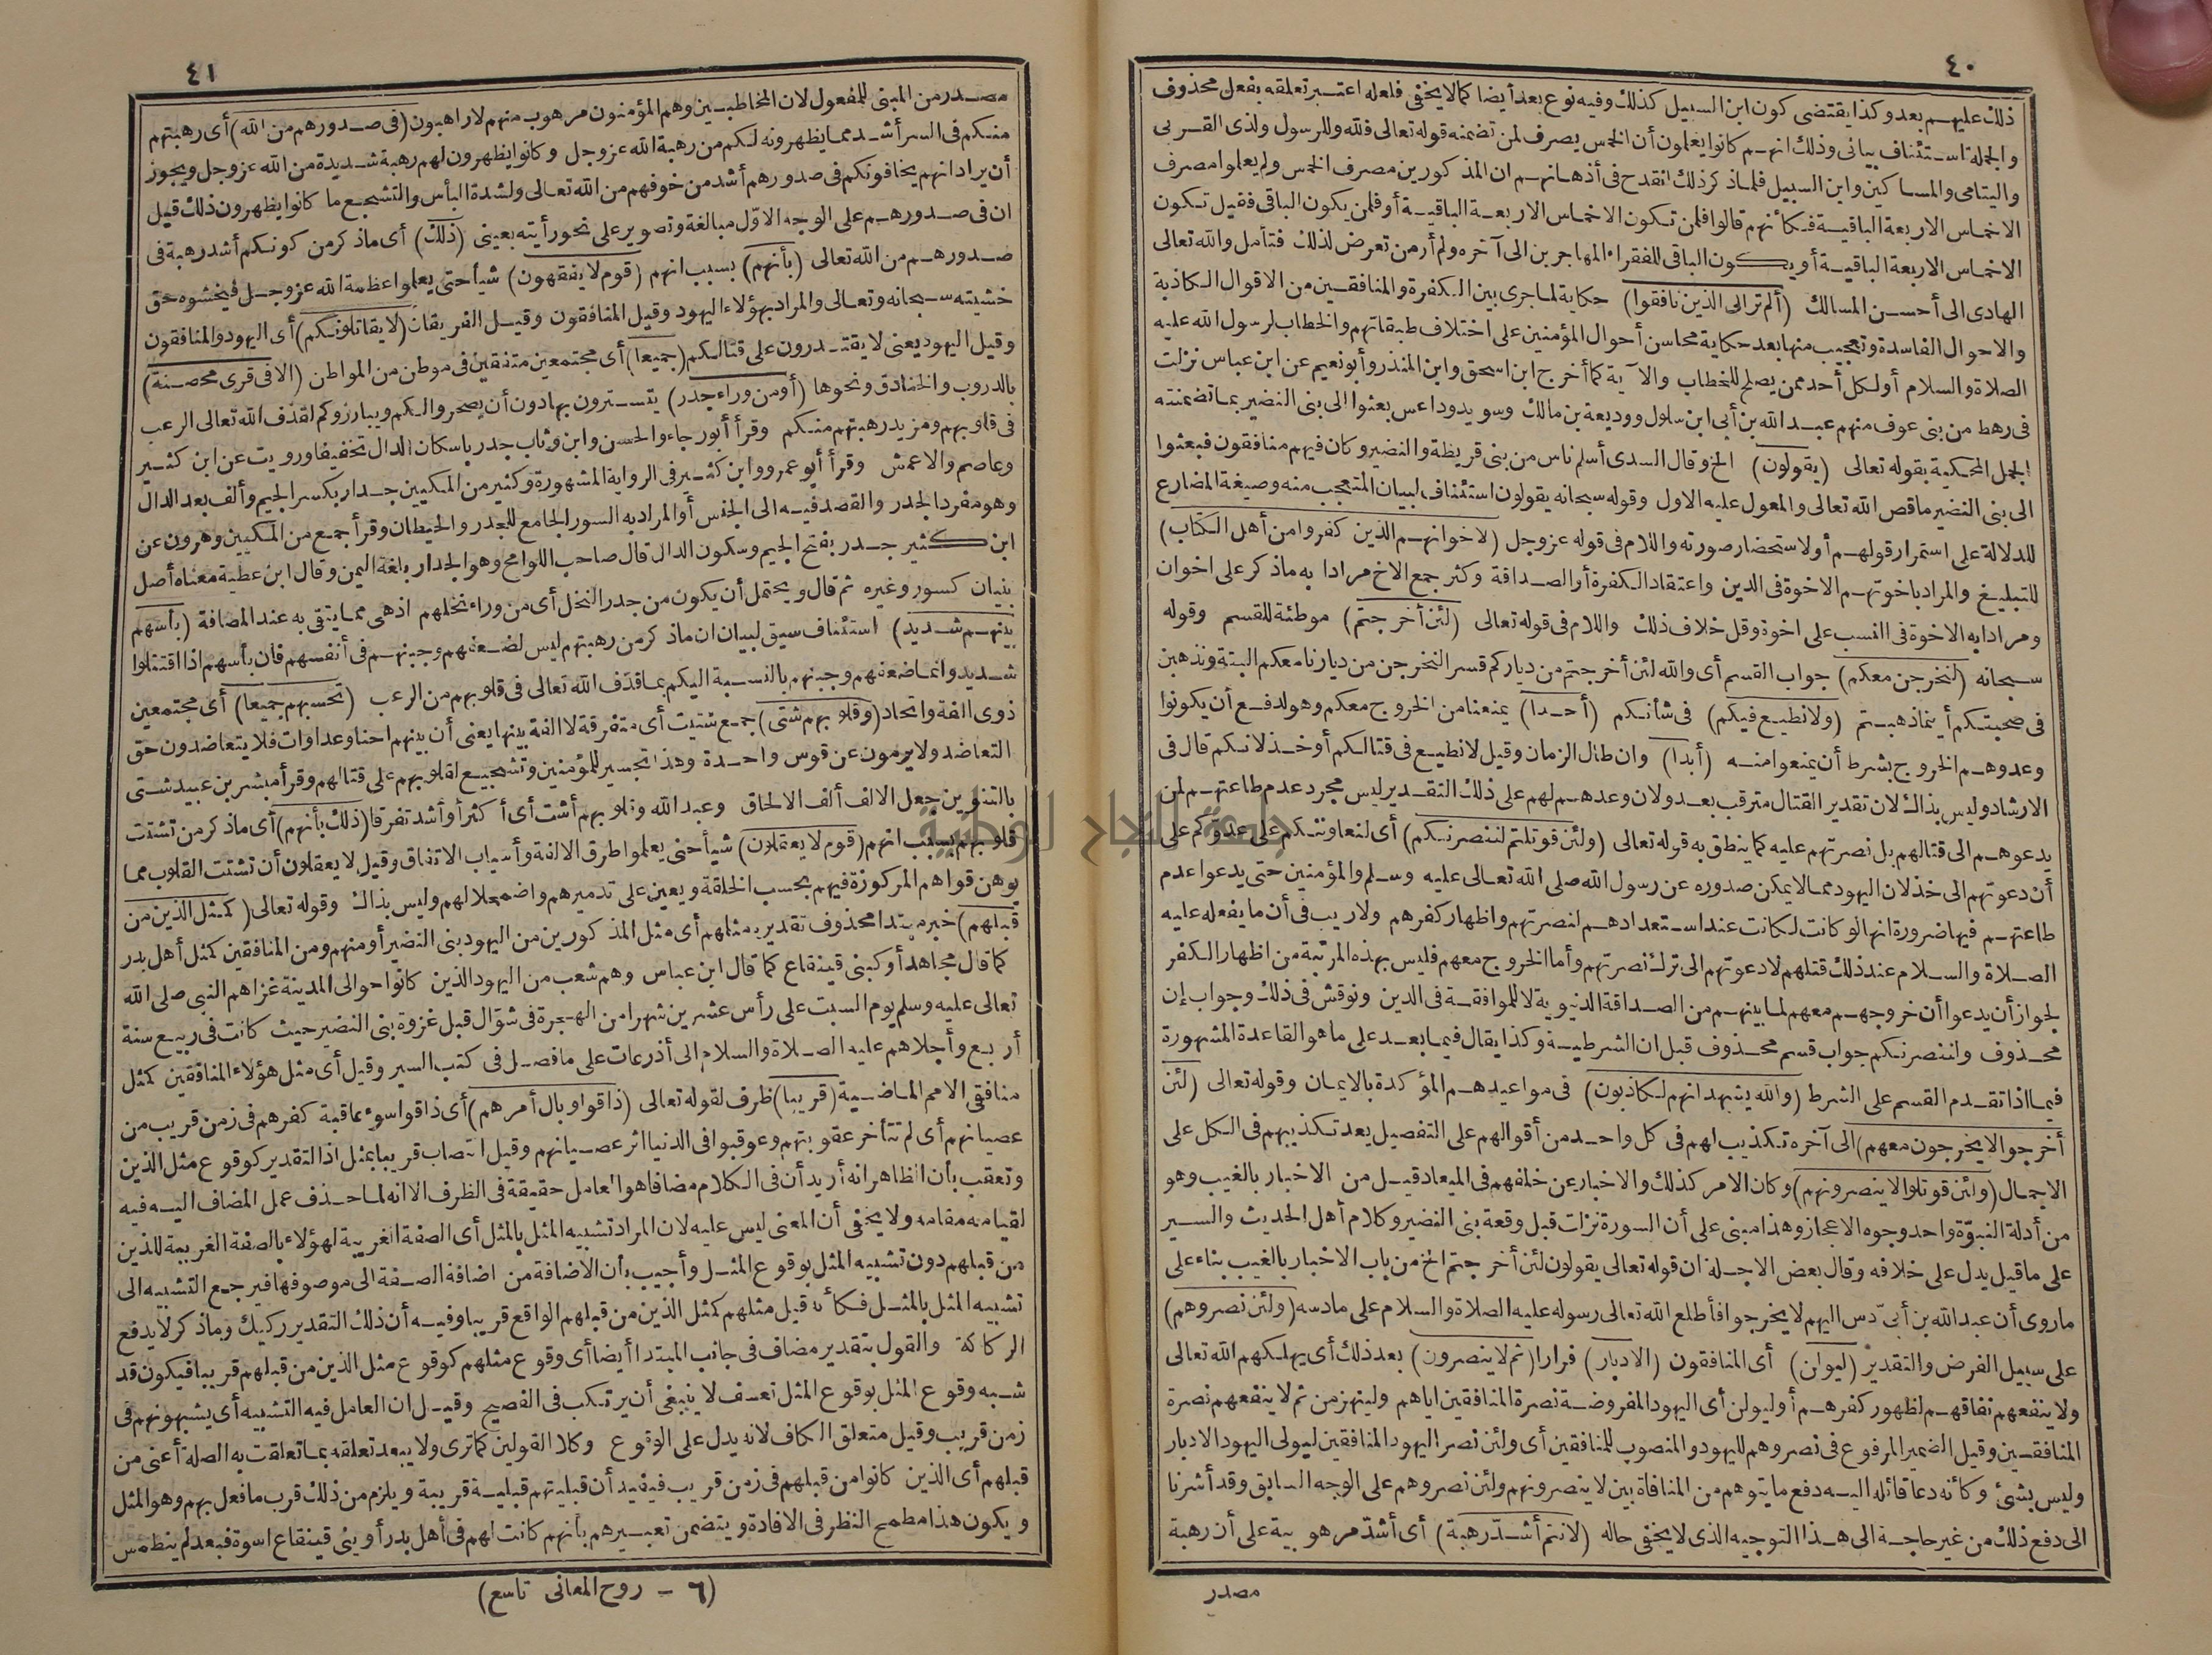 ٤٠
ذلك عليهم بعد وكذا يقتضى كون ابن السبيل كذلك وفيه نوع بعد أيضا كما لا يخفى فلعله اعتبر تعلقه بفعل محذوف
والجملة استئناف بيانى وذلك انهم كانوا يعلمون أن الخمس يصرف لمن تضمنه قوله تعالى فلله وللرسول ولذى القربى
واليتامى والمساكين وابن السبيل فلما ذكر ذلك انقدح فى أذهانهم ان المذكورين مصرف الخمس ولم يعلموا مصرف
الاخماس الاربعة الباقية فكأنهم قالوا فلمن تكون الاخماس الاربعة الباقية أو فلمن يكون الباقى فقيل تكون
الاخماس الاربعة الباقية أو يكون الباقى للفقراء المهاجرين الى آخره ولم أر من تعرض لذلك فتأمل والله تعالى
الهادى الى أحسن المسالك (ألم تر الى الذين نافقوا) حكاية لما جرى بين الكفرة والمنافقين من الاقوال الكاذبة
والاحوال الفاسدة وتعجيب منها بعد حكاية محاسن أحوال المؤمنين على اختلاف طبقاتهم والخطاب لرسول الله عليه
الصلاة والسلام أو لكل أحد ممن يصلح للخطاب والآية كما أخرج ابن اسحق وابن المنذر وأبو نعيم عن ابن عباس نزلت
فى رهط من بنى عوف منهم عبد الله بن أبى ابن سلول ووديعة بن مالك وسويد وداعس بعثوا الى بنى النضير بما تضمنته
الجمل المحكية بقوله تعالى (يقولون) الخ وقال السدى أسلم ناس من بنى قريظة والنضير وكان فيهم منافقون فبعثوا
الى بنى النضير ما قص الله تعالى والمعول عليه الاول وقوله سبحانه يقولون استئناف لبيان المتعجب منه وصيغة المضارع
للدلالة على استمرار قولهم أو لاستحضار صورته واللام فى قوله عز وجل (لاخوانهم الذين كفروا من أهل الكتاب)
للتبليغ والمراد باخوتهم الاخوة فى الدين واعتقاد الكفرة أو الصداقة وكثر جمع الاخ مرادا به ما ذكر على اخوان
ومرادا به الاخوة فى النسب على اخوة وقل خلاف ذلك واللام فى قوله تعالى (لئن أخرجتم) موطئة للقسم وقوله
سبحانه (لنخرجن معكم) جواب القسم أى والله لئن أخرجتم من دياركم قسرا لنخرجن من ديارنا معكم البتة ونذهبن
فى صحبتكم أينما ذهبتم (ولا نطيع فيكم) فى شأنكم (أحدا) يمنعنا من الخروج معكم وهو لدفع أن يكونوا
وعدوهم الخروج بشرط أن يمنعوا منه (أبدا) وان طال الزمان وقيل لا نطيع فى قتالكم أو خذلانكم قال فى
الارشاد وليس بذاك لان تقدير القتال مترقب بعد ولان وعدهم لهم على ذلك التقدير ليس مجرد عدم طاعتهم لمن
يدعوهم الى قتالهم بل نصرتهم عليه كما ينطق به قوله تعالى (ولئن قوتلتم لننصرنكم) أى لنعاوننكم على عدوكم على
أن دعوتهم الى خذلان اليهود مما لا يمكن صدوره عن رسول الله صلى الله تعالى عليه وسلم والمؤمنين حتى يدعوا عدم
طاعتهم فيها ضرورة انها لو كانت لكانت عند استعدادهم لنصرتهم واظهار كفرهم ولا ريب فى أن ما يفعله عليه
الصلاة والسلام عند ذلك قتلهم لا دعوتهم الى ترك نصرتهم وأما الخروج معهم فليس بهذه المرتبة من اظهار الكفر
لجواز أن يدعوا أن خروجهم معهم لما بينهم من الصداقة الدنيوية لا للموافقة فى الدين ونوقش فى ذلك وجواب إن
محذوف ولننصرنكم جواب قسم محذوف قبل ان الشرطية وكذا يقال فيما بعد على ما هو القاعدة المشهورة
فيما اذا تقدم القسم على الشرط (والله يشهد انهم لكاذبون) فى مواعيدهم المؤكدة بالايمان وقوله تعالى (لئن
أخرجوا لا يخرجون معهم) الى آخره تكذيب لهم فى كل واحد من أقوالهم على التفصيل بعد تكذيبهم فى الكل على
الاجمال (ولئن قوتلوا لا ينصرونهم) وكان الامر كذلك والاخبار عن خلفهم فى الميعاد قيل من الاخبار بالغيب وهو
من أدلة النبوّة واحد وجوه الاعجاز وهذا مبنى على أن السورة نزلت قبل وقعة بنى النضير وكلام أهل الحديث والسير
على ما قيل يدل على خلافه وقال بعض الاجلة ان قوله تعالى يقولون لئن أخرجتم الخ من باب الاخبار بالغيب بناء على
ما روى أن عبد الله بن أبىّ دس اليهم لا يخرجوا فأطلع الله تعالى رسوله عليه الصلاة والسلام على ما دسه (ولئن نصروهم)
على سبيل الفرض والتقدير (ليولن) أى المنافقون (الادبار) فرارا (ثم لا ينصرون) بعد ذلك أى يهلكهم الله تعالى
ولا ينفعهم نفاقهم لظهور كفرهم أو ليولن أى اليهود المفروضة نصرة المنافقين اياهم ولينهزمن ثم لا ينفعهم نصرة
المنافقين وقيل الضمير المرفوع فى نصروهم لليهود والمنصوب للمنافقين أى ولئن نصر اليهود المنافقين ليولى اليهود الادبار
وليس بشئ وكأنه دعا قائله اليه دفع ما يتوهم من المنافاة بين لا ينصرونهم ولئن نصروهم على الوجه السابق وقد أشرنا
الى دفع ذلك من غير حاجة الى هذا التوجيه الذى لا يخفى حاله (لانتم أشدّ رهبة) أى أشدّ مرهوبية على أن رهبة
مصدر
٤١
مصدر من المبنى للمفعول لان المخاطبين وهم المؤمنون مرهوب منهم لا راهبون (فى صدورهم من الله) أى رهبتهم
منكم فى السر أشد مما يظهرونه لكم من رهبة الله عز وجل وكانوا يظهرون لهم رهبة شديدة من الله عز وجل ويجوز
أن يراد انهم يخافونكم فى صدورهم أشد من خوفهم من الله تعالى ولشدة البأس والتشجيع ما كانوا يظهرون ذلك قيل
ان فى صدورهم على الوجه الاوّل مبالغة وتصوير على نحو رأيته بعينى (ذلك) أى ما ذكر من كونكم أشد رهبة فى
صدورهم من الله تعالى (بأنهم) بسبب انهم (قوم لا يفقهون) شيأ حتى يعلموا عظمة الله عز وجل فيخشوه حق
خشيته سبحانه وتعالى والمراد بهؤلاء اليهود وقيل المنافقون وقيل الفريقان (لا يقاتلونكم) أى اليهود والمنافقون
وقيل اليهود يعنى لا يقتدرون على قتالكم (جميعا) أى مجتمعين متفقين فى موطن من المواطن (الا فى قرى محصنة)
بالدروب والخنادق ونحوها (أو من وراء جدر) يتسترون بها دون أن يصحروا لكم ويبارزوكم لقذف الله تعالى الرعب
فى قلوبهم ومزيد رهبتهم منكم وقرأ أبو رجاء والحسن وابن وثاب جدر باسكان الدال تخفيفا ورويت عن ابن كثير
وعاصم والاعمش وقرأ أبو عمرو وابن كثير فى الرواية المشهورة وكثير من المكيين جدار بكسر الجيم وألف بعد الدال
وهو مفرد الجدر والقصد فيه الى الجنس أو المراد به السور الجامع للجدر والحيطان وقرأ جمع من المكيين وهرون عن
ابن كثير جدر بفتح الجيم وسكون الدال قال صاحب اللوامح وهو الجدار بلغة اليمن وقال ابن عطية معناه أصل
بنيان كسور وغيره ثم قال ويحتمل أن يكون من جدر النخل أى من وراء نخلهم اذ هى مما يتقى به عند المصافة (بأسهم
بينهم شديد) استئناف سيق لبيان ان ما ذكر من رهبتهم ليس لضعفهم وجبنهم فى أنفسهم فان بأسهم اذا اقتتلوا
شديد وانما ضعفهم وجبنهم بالنسبة اليكم بما قذف الله تعالى فى قلوبهم من الرعب (تحسبهم جميعا) أى مجتمعين
ذوى الفة واتحاد (وقلوبهم شتى) جمع شتيت أى متفرقة لا الفة بينها يعنى أن بينهم احنا وعداوات فلا يتعاضدون حق
التعاضد ولا يرمون عن قوس واحدة وهذا تجسير للمؤمنين وتشجيع لقلوبهم على قتالهم وقرأ مبشر بن عبيد شتى
بالتنوين جعل الالف ألف الالحاق وعبد الله وقلوبهم أشت أى أكثر أو أشد تفرقا (ذلك بأنهم) أى ما ذكر من تشتت
قلوبهم بسبب انهم (قوم لا يعقلون) شيأ حتى يعلموا طرق الالفة وأسباب الاتفاق وقيل لا يعقلون أن تشتت القلوب مما
يوهن قواهم المركوزة فيهم بحسب الخلقة ويعين على تدميرهم واضمحلالهم وليس بذاك وقوله تعالى (كمثل الذين من
قبلهم) خبر مبتدا محذوف تقديره مثلهم أى مثل المذكورين من اليهود بنى النضير أو منهم ومن المنافقين كمثل أهل بدر
كما قال مجاهد أو كبنى قينقاع كما قال ابن عباس وهم شعب من اليهود الذين كانوا حوالى المدينة غزاهم النبى صلى الله
تعالى عليه وسلم يوم السبت على رأس عشرين شهرا من الهجرة فى شوّال قبل غزوة بنى النضير حيث كانت فى ربيع سنة
أربع وأجلاهم عليه الصلاة والسلام الى أذرعات على ما فصل فى كتب السير وقيل أى مثل هؤلاء المنافقين كمثل
منافقى الامم الماضية (قريبا) ظرف لقوله تعالى (ذاقوا وبال أمرهم) أى ذاقوا سوء عاقبة كفرهم فى زمن قريب من
عصيانهم أى لم تتأخر عقوبتهم وعوقبوا فى الدنيا اثر عصيانهم وقيل انتصاب قريبا بمثل اذ التقدير كوقوع مثل الذين
وتعقب بأن الظاهر انه أريد أن فى الكلام مضافا هو العامل حقيقة فى الظرف الا انه لما حذف عمل المضاف اليه فيه
لقيامه مقامه ولا يخفى أن المعنى ليس عليه لان المراد تشبيه المثل بالمثل أى الصفة الغريبة لهؤلاء بالصفة الغريبة للذين
من قبلهم دون تشبيه المثل بوقوع المثل وأجيب بأن الاضافة من اضافة الصفة الى موصوفها فيرجع التشبيه الى
تشبيه المثل بالمثل فكأنه قيل مثلهم كمثل الذين من قبلهم الواقع قريبا وفيه أن ذلك التقدير ركيك وما ذكر لا يدفع
الركاكة والقول بتقدير مضاف فى جانب المبتدا أيضا أى وقوع مثلهم كوقوع مثل الذين من قبلهم قريبا فيكون قد
شبه وقوع المثل بوقوع المثل تعسف لا ينبغى أن يرتكب فى الفصيح وقيل ان العامل فيه التشبيه أى يشبهونهم فى
زمن قريب وقيل متعلق الكاف لانه يدل على الوقوع وكلا القولين كما ترى ولا يبعد تعلقه بما تعلقت به الصلة أعنى من
قبلهم أى الذين كانوا من قبلهم فى زمن قريب فيفيد أن قبليتهم قبلية قريبة ويلزم من ذلك قرب ما فعل بهم وهو المثل
ويكون هذا مطمح النظر فى الافادة ويتضمن تعبيرهم بأنهم كانت لهم فى أهل بدر أو بنى قينقاع اسوة فبعد لم ينطمس
(٦ - روح المعانى تاسع)
جامعة النجاح الوطنية